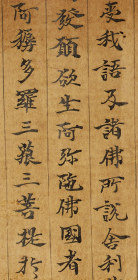 受我語及諸佛所說舍利
發願欲生阿弥陁佛國者
阿耨多羅三藐三菩提於